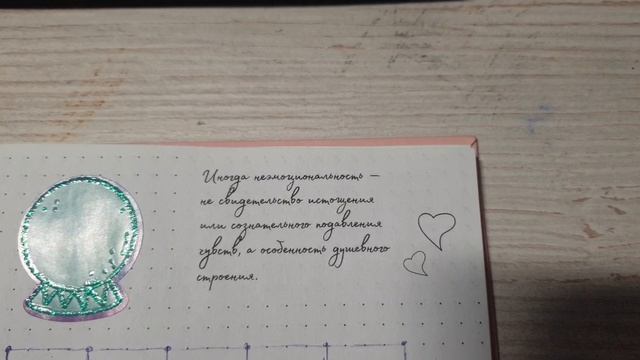 Иногда неэмоциональность —
не свидетельство истощения
или сознательного подавления
чувств, а особенность душевного
строения.